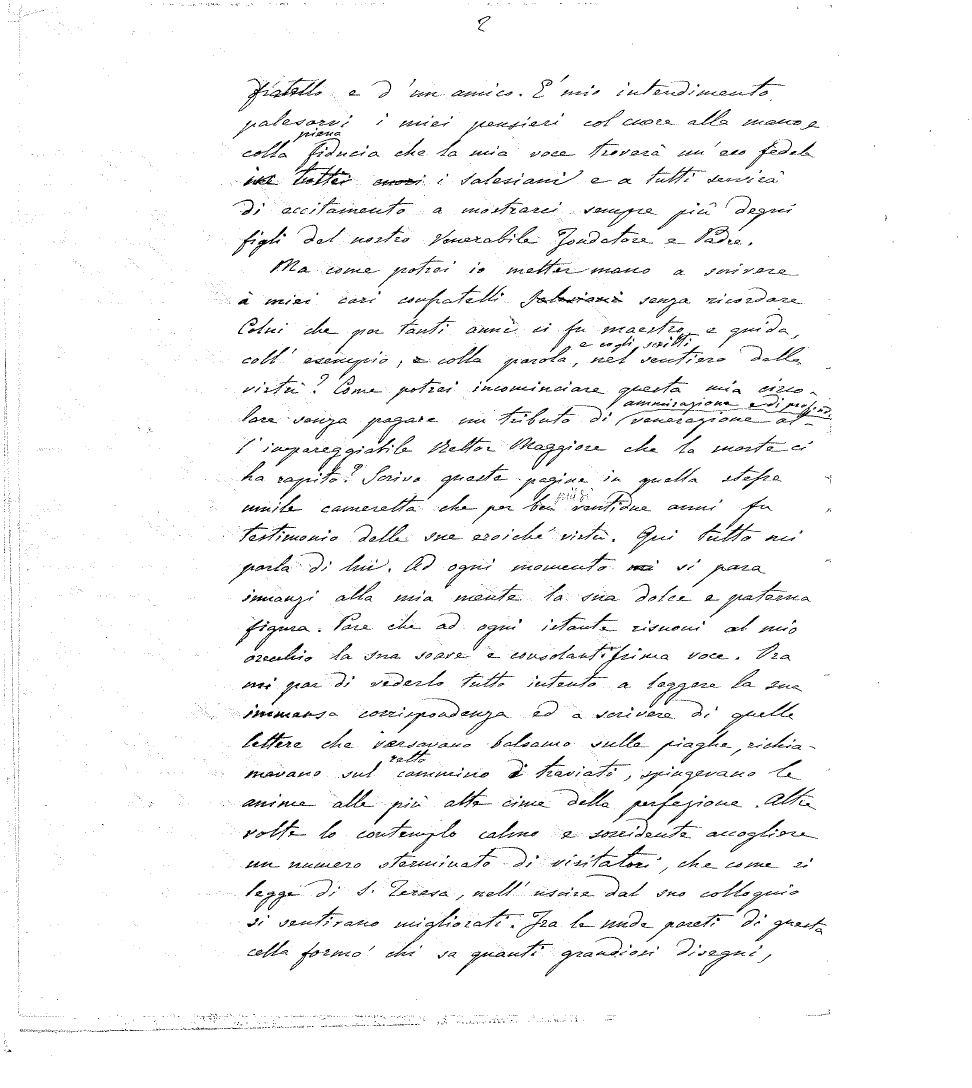 2
fratello e d'un amico. E' mio intendimento
palesarvi i miei pensieri col cuore alla mano e
piena
colla fiducia che la mia voce troverà un' eco fedele
tutti cuori i Salesiani e a tutti servirà
di eccitamento a mostrarci sempre più degni
figli del nostro Venerabile Fondatore e Padre.
Ma come potrei io metter mano a scrivere
a miei cari confratelli Salesiani senza ricordare
Colui che per tanti anni ci fu maestro e guida,
e cogli scritti
coll' esempio, e colla parola, nel sentiero della
virtù? Come potrei incominciare questa mia circo-
ammirazione e di
lare senza pagare un tributo di venerazione al-
l' impareggiabile Rettor Maggiore che la morte ci
ha rapito? Scrivo queste pagine in quella stessa
umile cameretta che per ben ventidue anni fu
testimonio delle sue eroiche virtù. Qui tutto mi
parla di lui. Ad ogni momento mi si para
innanzi alla mia mente la sua dolce e paterna
figura. Pare che ad ogni istante risuoni al mio
orecchio la sua soave e consolantissima voce. Ora
mi par di vederlo tutto intento a leggere la sua
immensa corrispondenza ed a scrivere di quelle
lettere che versavano balsamo sulle piaghe, richia-
retto
mavano sul cammino i traviati, spingevano le
anime alle più alte cime della perfezione. Altre
volte lo contemplo calmo e sorridente accogliere
un numero sterminato di visitatori, che come si
legge di S. Teresa, nell' uscire dal suo colloquio
si sentivano migliorati. Fra le nude pareti di questa
cella formò chi sa quanti grandiosi disegni,